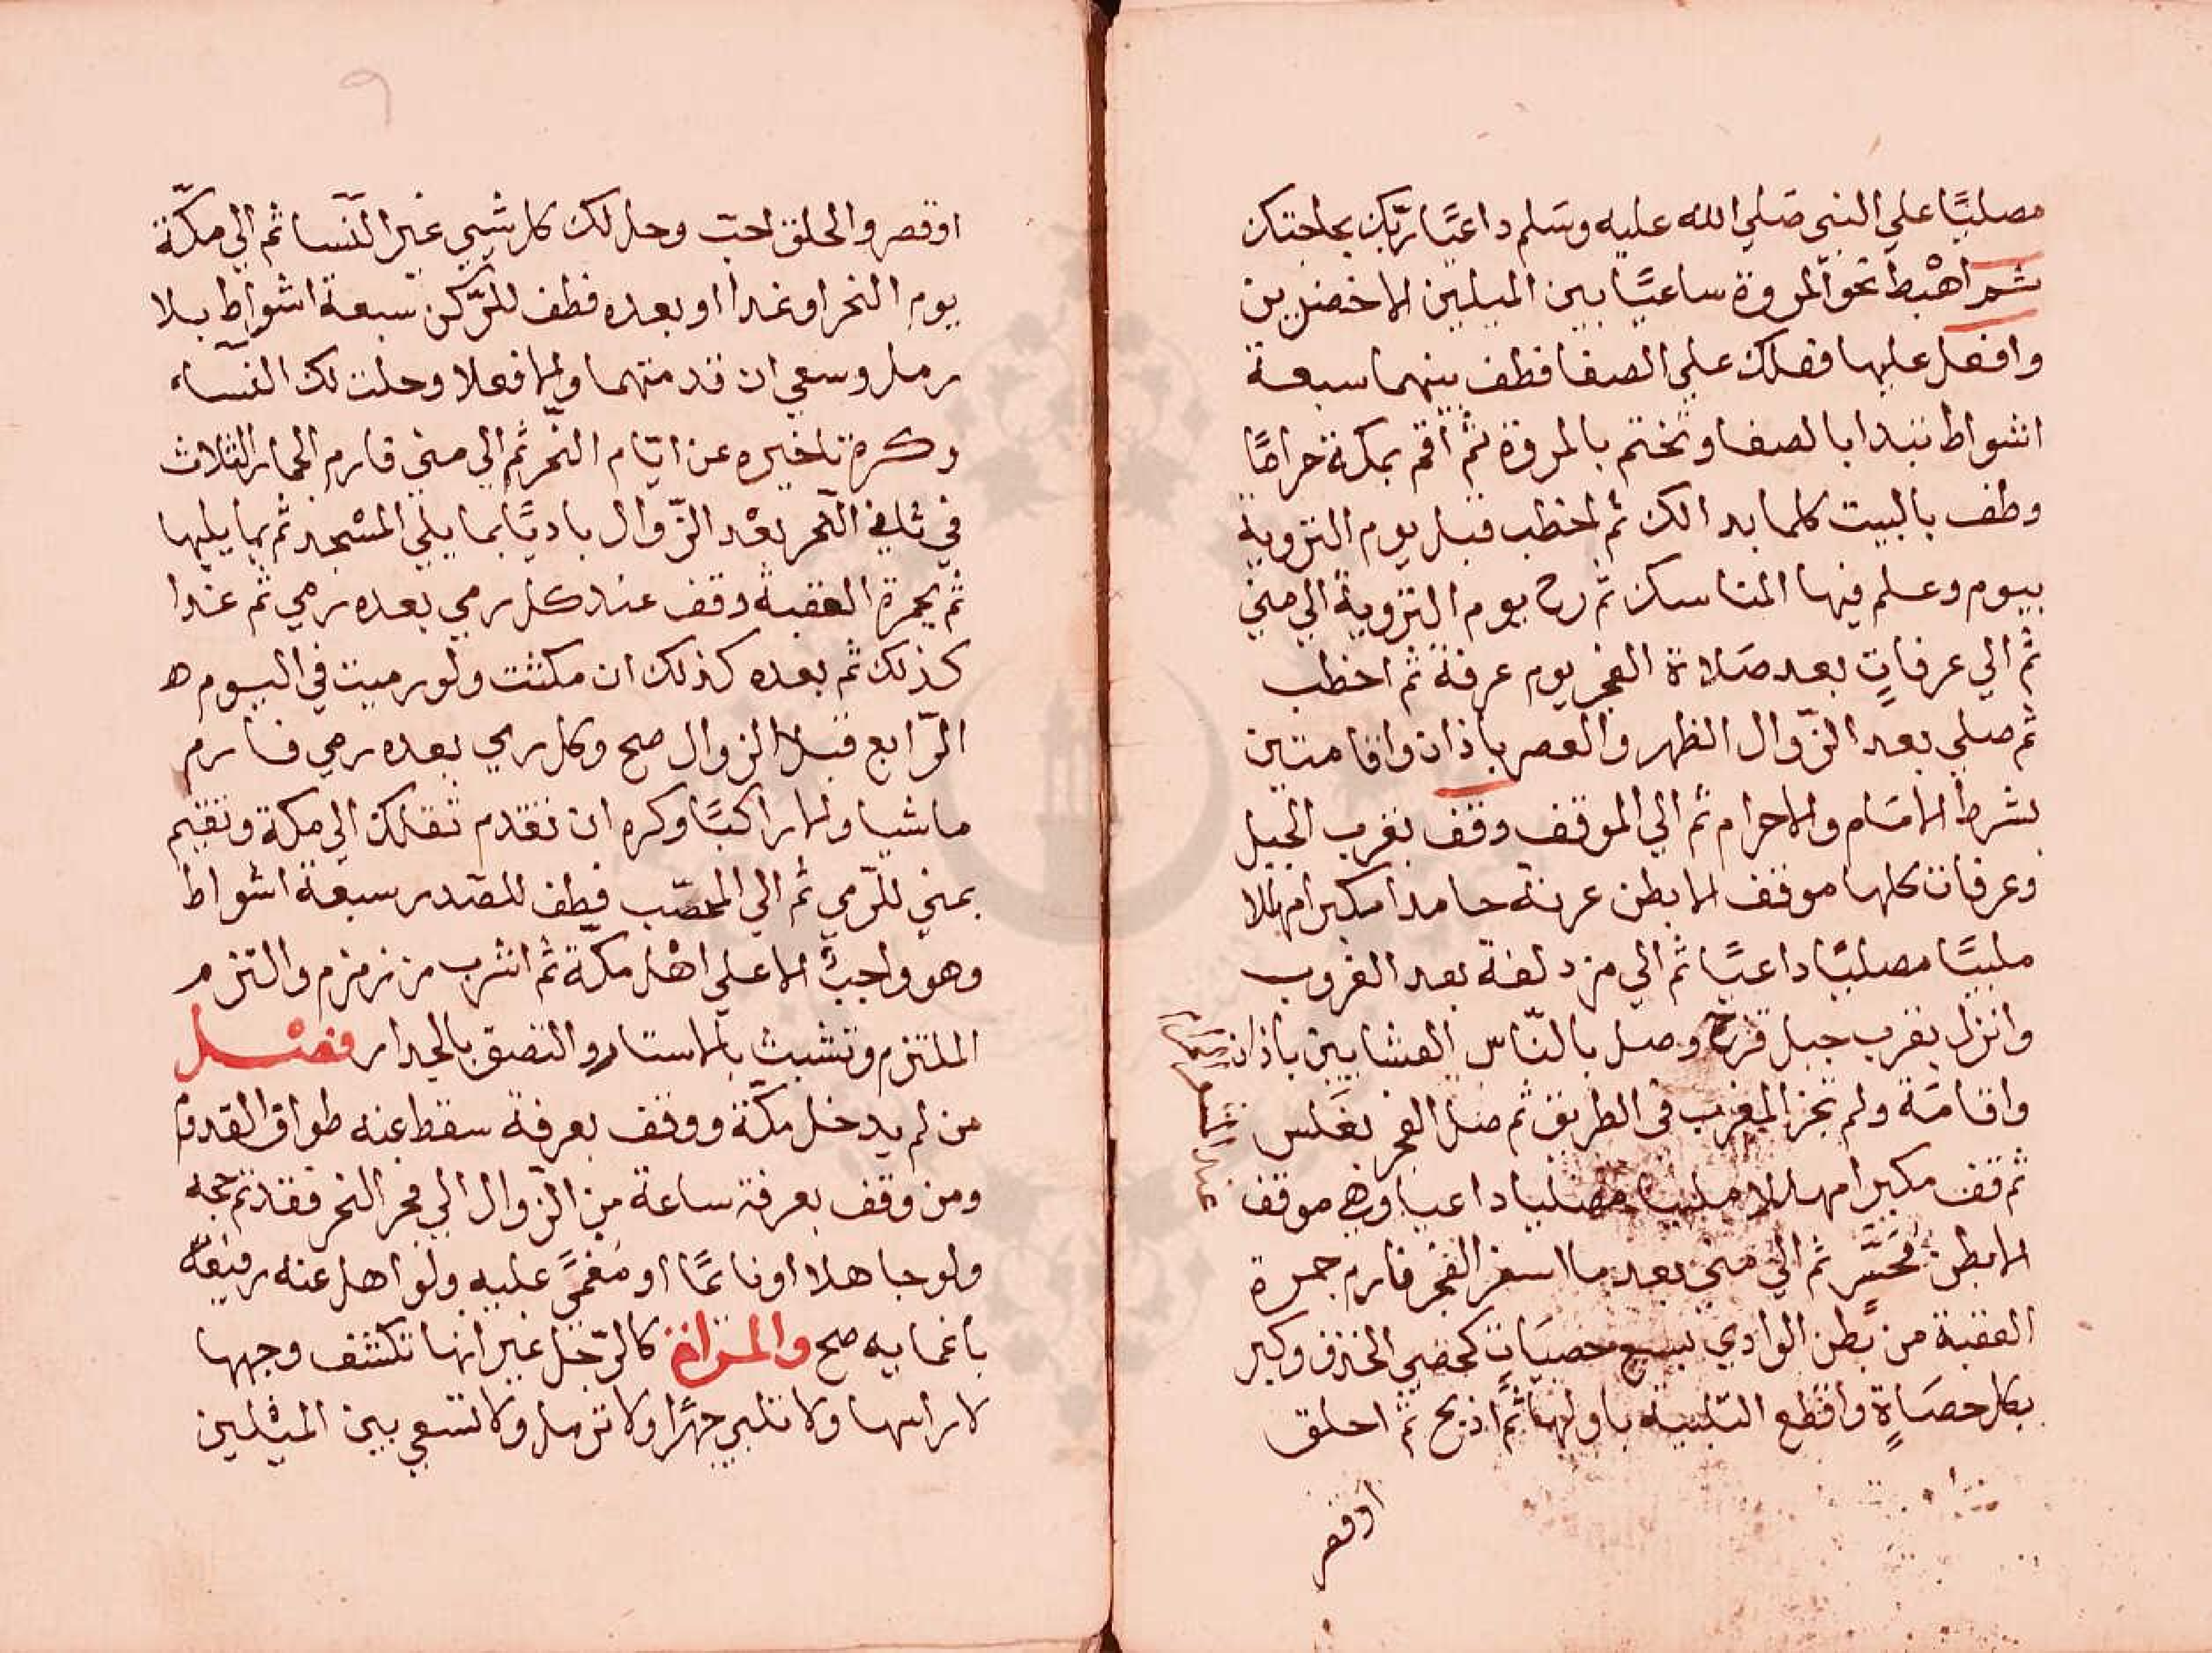 مصليًا علي النبي صَلي الله عليه وسَلم داعيًا ربّك بحاجتك
ثم اهْبط نحو المروة ساعيًا بين الميلين الاخضرين
وافعل عليها فعلك علي الصفا فطف بينهما سبعة
اشواط تبدا بالصفا وتختم بالمروة ثم أقم بمكة حرامًا
وطف بالبيت كلما بدا لك ثم اخطب قبل يوم التروية
بيوم وعلم فيها المناسك ثم رح يوم التروية الي مني
ثم الي عرفاتٍ بعد صَلاة الفجر يوم عرفة ثم اخطب
ثم صلي بعد الزّوال الظهر والعصر باذان واقامتين
بشرط الامَام والاحرام ثم الي الموقف وقف بقرب الجبل
وعرفات كلها موقف الا بطن عرنة حامدا مكبرا مهللا
ملبيًا مصليًا داعيًا ثم الي مزدلفة بعد الغروب
وانزل بقرب جبل قزح وصل بالنّاس العشايين باذان
واقامَة ولم تجز المغرب في الطريق ثم صل الفجر بغَلس
ثم قف مكبرا مهللا ملبيا مصليا داعيا وهي موقف
الا بطن مُحَسّر ثم الي مني بعد ما اسفر الفجر فارم جمرة
العقبة من بَطن الوادي بسبع حصيَاتٍ كحصي الخذف وكبر
بكل حصَاةٍ واقطع التلبية باولها ثم اذبح ثم احلق
اوقصر
اوقصر والحلق احبّ وحل لك كل شيي غير النّسا ثم الي مكّة
يوم النحر اوغدا او بعده فطف للرّكن سبعة اشواط بلا
رمل وسعي ان قدمتهما والا فعلا وحلت لك النّساء
وكره تاخيره عن ايّام النّحر ثم الي مني فارم الجمار الثلاث
في ثاني النّحر بعْد الزّوال باديًا بما يلي المسْجد ثم بما يليها
ثم بجمرة العقبة وقف عند كل رمي بعده رمي ثم غدا
كذلك ثم بعده كذلك ان مكثت ولو رميت في اليوم ه
الرّابع قبل الزوال صح وكل رمي بعده رمي فارم
ماشيا والا راكبًا وكره ان تقدم ثقلك الي مكة وتقيم
بمني للرّمي ثم الي المحصّب فطف للصّدر سبعة اشواط
وهو واجبٌ الا علي اهْل مكّة ثم اشرب من زمزم والتزم
الملتزم وتشبث بالاستار والتصق بالجدار فصْل
من لم يدخل مكّة ووقف بعرفة سقط عنه طواف القدوم
ومن وقف بعرفة ساعة من الزّوال الي فجر النحر فقد تم حجه
ولو جاهلا او نائمًا او مغمًى عليه ولو اهل عنه رفيقه
باغمايه صح والمراة كالرّجل غير انها تكشف وجهها
لا راسها ولا تلبي جهرًا ولا ترمل ولا تسعي بين الميلين